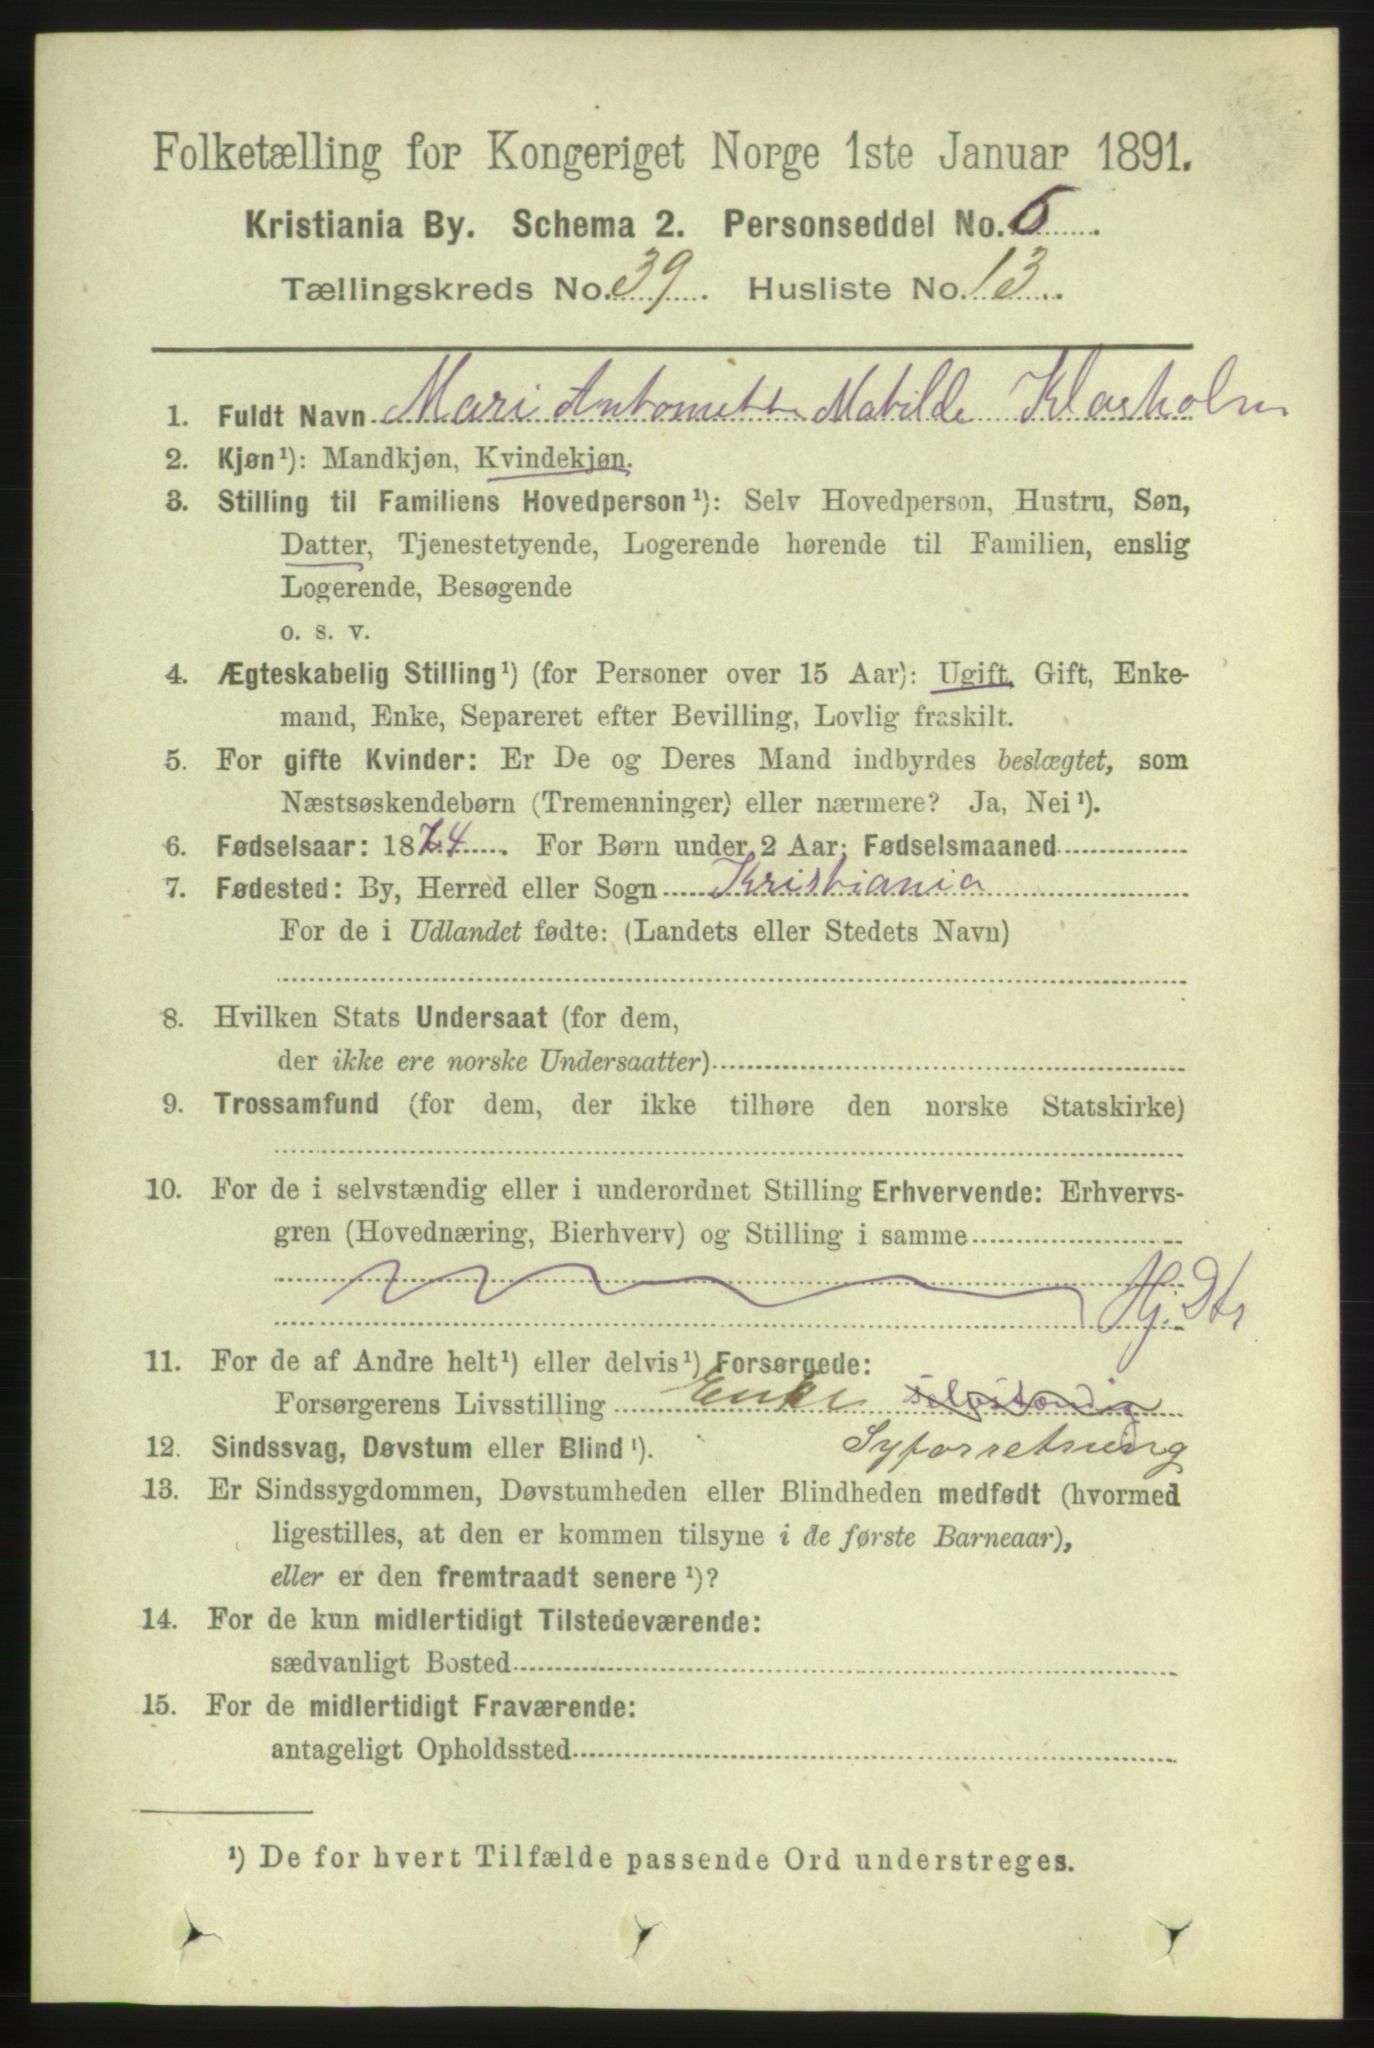 Folketælling for Kongeriget Norge 1ste Januar 1891.
Kristiania By. Schema 2. Personseddel No. 6
Tællingskreds No. 39. Husliste No. 13.
1. Fuldt Navn Mari Antonette Matilde Klasholm
2. Kjøn¹): Mandkjøn, Kvindekjøn.
3. Stilling til Familiens Hovedperson¹): Selv Hovedperson, Hustru, Søn,
Datter, Tjenestetyende, Logerende hørende til Familien, enslig
Logerende, Besøgende
o. s. v.
4. Ægteskabelig Stilling¹) (for Personer over 15 Aar): Ugift, Gift, Enke-
mand, Enke, Separeret efter Bevilling, Lovlig fraskilt.
5. For gifte Kvinder: Er De og Deres Mand indbyrdes beslægtet, som
Næstsøskendebørn (Tremenninger) eller nærmere? Ja, Nei¹).
6. Fødselsaar: 1874. For Børn under 2 Aar: Fødselsmaaned
7. Fødested: By, Herred eller Sogn Kristiania
For de i Udlandet fødte: (Landets eller Stedets Navn)
8. Hvilken Stats Undersaat (for dem,
der ikke ere norske Undersaatter)
9. Trossamfund (for dem, der ikke tilhøre den norske Statskirke)
10. For de i selvstændig eller i underordnet Stilling Erhvervende: Erhvervs-
gren (Hovednæring, Bierhverv) og Stilling i samme
Hj. Dtr
11. For de af Andre helt¹) eller delvis¹) Forsørgede:
Forsørgerens Livsstilling Enke selvstændig
12. Sindssvag, Døvstum eller Blind¹). Syforretning
13. Er Sindssygdommen, Døvstumheden eller Blindheden medfødt (hvormed
ligestilles, at den er kommen tilsyne i de første Barneaar),
eller er den fremtraadt senere¹)?
14. For de kun midlertidigt Tilstedeværende:
sædvanligt Bosted
15. For de midlertidigt Fraværende:
antageligt Opholdssted
¹) De for hvert Tilfælde passende Ord understreges.